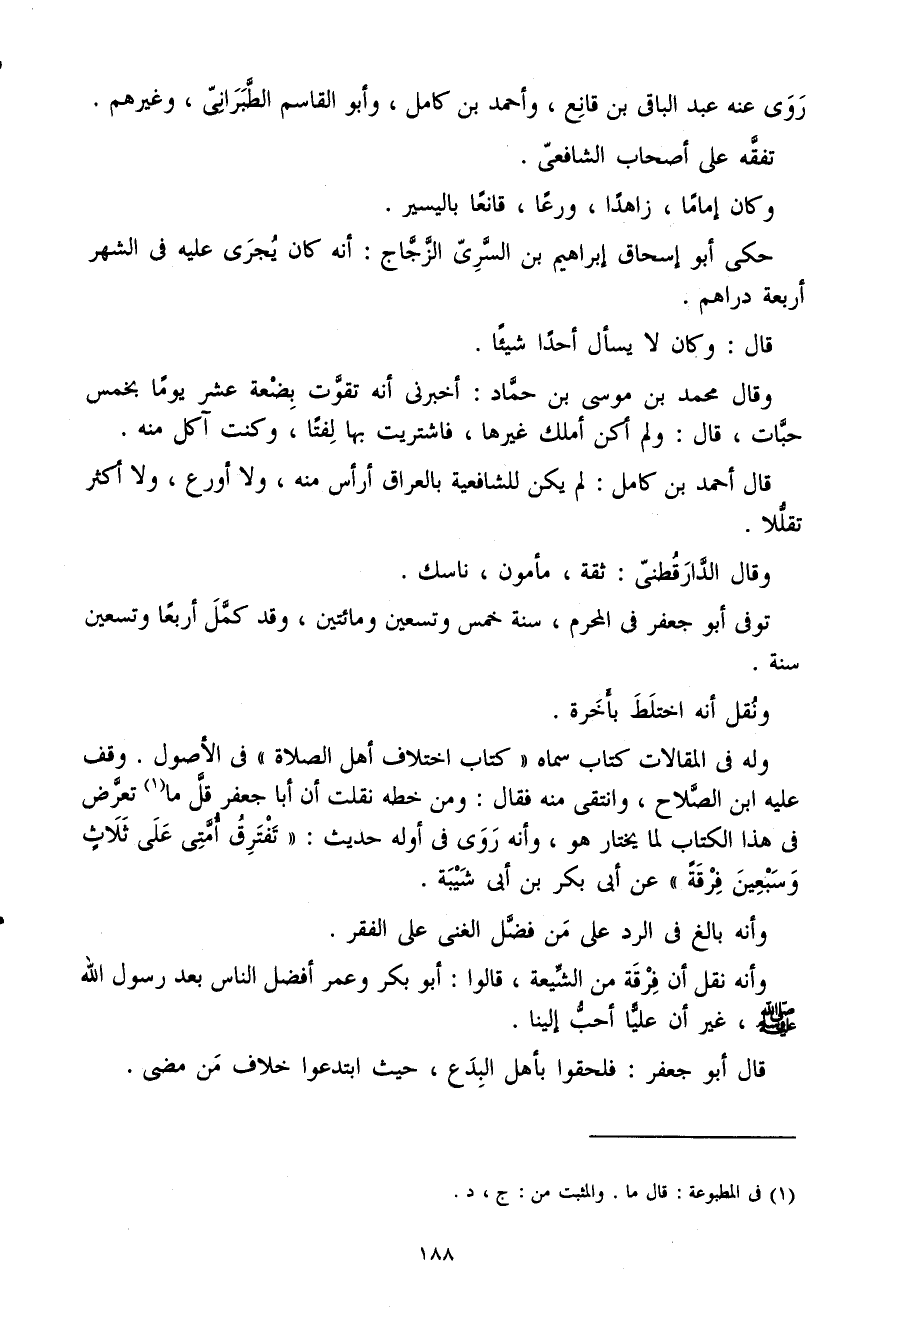 رَوَى عنه عبد الباقى بن قانِع ، وأحمد بن كامل ، وأبو القاسم الطَّبَرَانِىّ ، وغيرهم .
تفقَّه على أصحاب الشافعىّ .
وكان إمامًا ، زاهدًا ، ورعًا ، قانعًا باليسير .
حكى أبو إسحاق إبراهيم بن السَّرِىّ الزَّجَّاج : أنه كان يُجرَى عليه فى الشهر
أربعة دراهم .
قال : وكان لا يسأل أحدًا شيئًا .
وقال محمد بن موسى بن حمَّاد : أخبرنى أنه تقوَّت بِضْعة عشر يومًا بخمس
حبَّات ، قال : ولم أكن أملك غيرها ، فاشتريت بها لِفتًا ، وكنت آكل منه .
قال أحمد بن كامل : لم يكن للشافعية بالعراق أرأس منه ، ولا أورع ، ولا أكثر
تقلُّلا .
وقال الدَّارَقُطنىّ : ثقة ، مأمون ، ناسك .
توفى أبو جعفر فى المحرم ، سنة خمس وتسعين ومائتين ، وقد كمَّلَ أربعًا وتسعين
سنة .
ونُقل أنه اختلَطَ بأَخَرة .
وله فى المقالات كتاب سماه « كتاب اختلاف أهل الصلاة » فى الأصول . وقف
عليه ابن الصَّلاح ، وانتقى منه فقال : ومن خطه نقلت أن أبا جعفر قلَّ ما(١) تعرَّض
فى هذا الكتاب لما يختار هو ، وأنه رَوَى فى أوله حديث : « تَفْتَرِقُ أُمَّتِى عَلَى ثَلَاثٍ
وَسَبْعِينَ فِرْقَةً » عن أبى بكر بن أبى شَيْبَة .
وأنه بالغ فى الرد على مَن فضَّل الغنى على الفقر .
وأنه نقل أن فِرْقَة من الشِّيعة ، قالوا : أبو بكر وعمر أفضل الناس بعد رسول الله
ﷺ ، غير أن عليًّا أحبُّ إلينا .
قال أبو جعفر : فلحقوا بأهل البِدَع ، حيث ابتدعوا خلاف مَن مضى .
(١) فى المطبوعة : قال ما . والمثبت من : ج ، د .
١٨٨